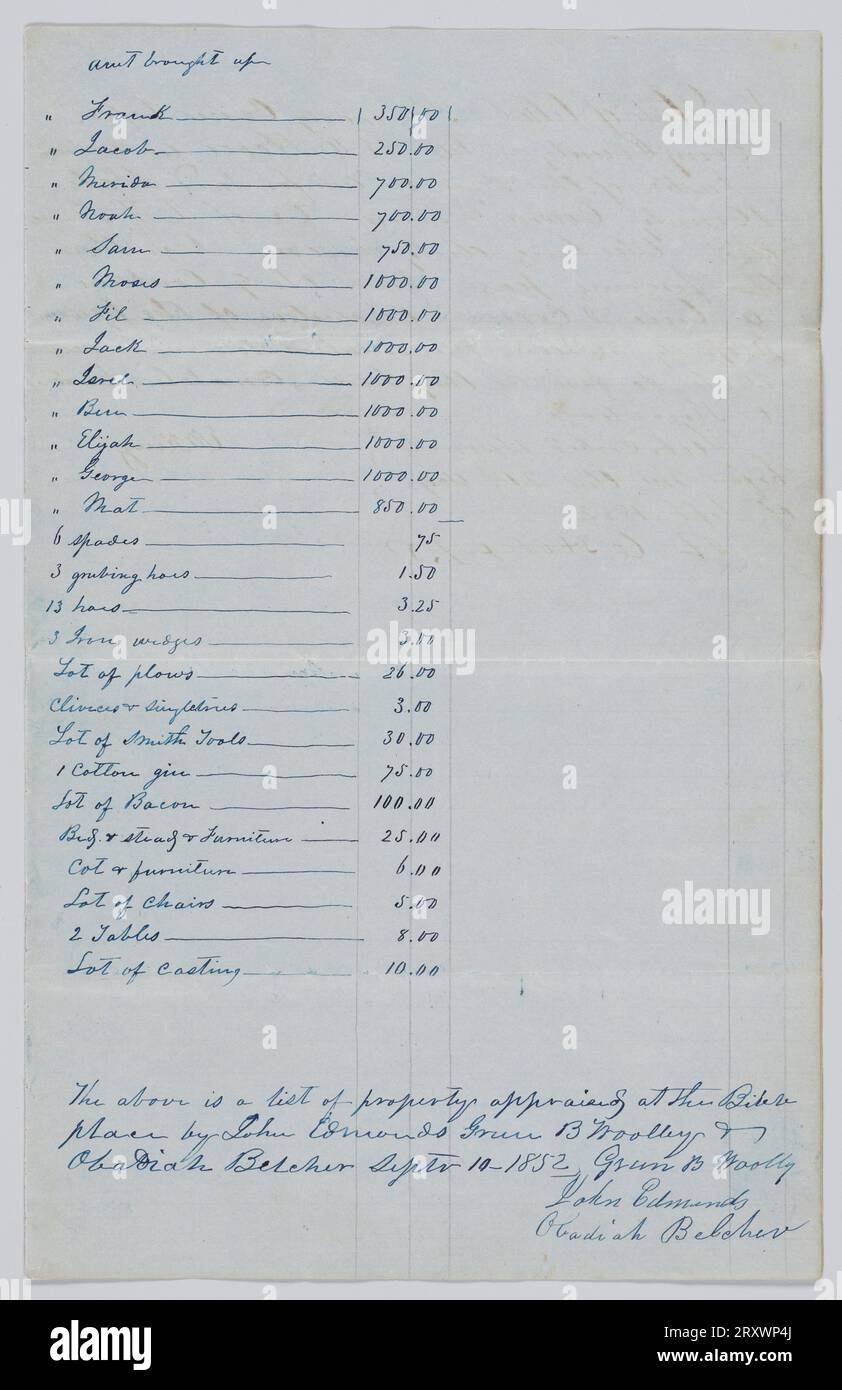 amt brought up
" Frank 350.00
" Jacob 250.00
" Merida 700.00
" Noah 700.00
" Sam 750.00
" Moses 1000.00
" Fil 1000.00
" Jack 1000.00
" Isrel 1000.00
" Ben 1000.00
" Elijah 1000.00
" George 1000.00
" Mat 850.00
6 spades 75
3 grubing hoes 1.50
13 hoes 3.25
3 Iron wedges 3.00
Lot of plows 26.00
Clivices & singletrees 3.00
Lot of Smith Tools 30.00
1 Cotton gin 75.00
Lot of Bacon 100.00
Bed & stead & Furniture 25.00
Cot & furniture 6.00
Lot of Chairs 5.00
2 Tables 8.00
Lot of Casting 10.00
The above is a list of property appraised at the
place by John Edmonds Green B Woolley &
Obadiah Belcher Septr 10 - 1852 Green B Woolly
John Edmunds
Obadiah Belcher
alamy
alamy
Image ID: 2RXWP4J
www.alamy.com